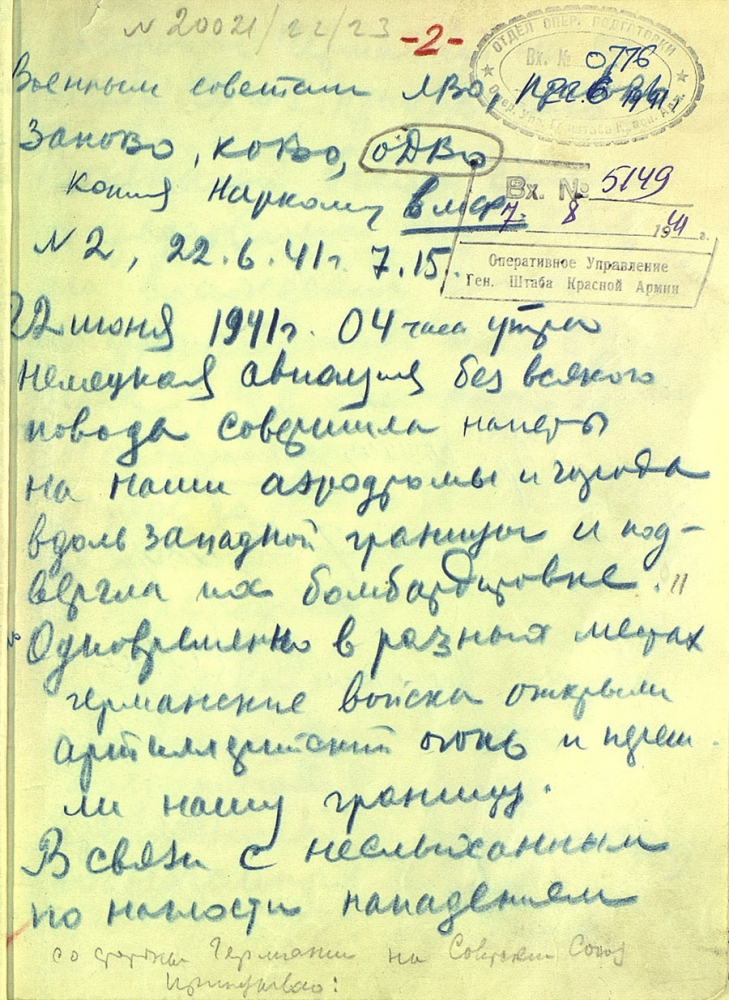 N 20021/22/23 -2-
ОТДЕЛ ОПЕР. ПОДГОТОВКИ
Вх. № 0776
22.6 1941
Военным советам ЛВО, прибово
Заново, ково, одво
Вх. № 5149
копия Наркому вмф
7. 8 1941 г.
N 2, 22.6.41г 7.15.
Оперативное Управление
Ген. Штаба Красной Армии
22 июня 1941г. 04 часа утра
немецкая авиация без всякого
повода совершила налеты
на наши аэродромы и города
вдоль западной границы и под-
вергла их бомбардировке.
Одновременно в разных местах
германские войска открыли
артиллерийский огонь и переш
ли нашу границу.
В связи с неслыханным
по наглости нападением
со стороны Германии на Советский Союз
Приказываю: